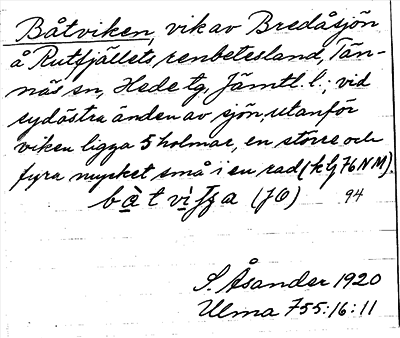 Båtviken, vik av Bredåsjön
å Rutfjällets renbetesland, Tän-
näs sn, Hede tg, Jämtl. l.; vid
sydöstra änden av sjön, utanför
viken ligga 5 holmar, en större och
fyra mycket små i en rad (kbl 76 NM).
(JO) 94
S. Åsander 1920
Ulma 755:16:11